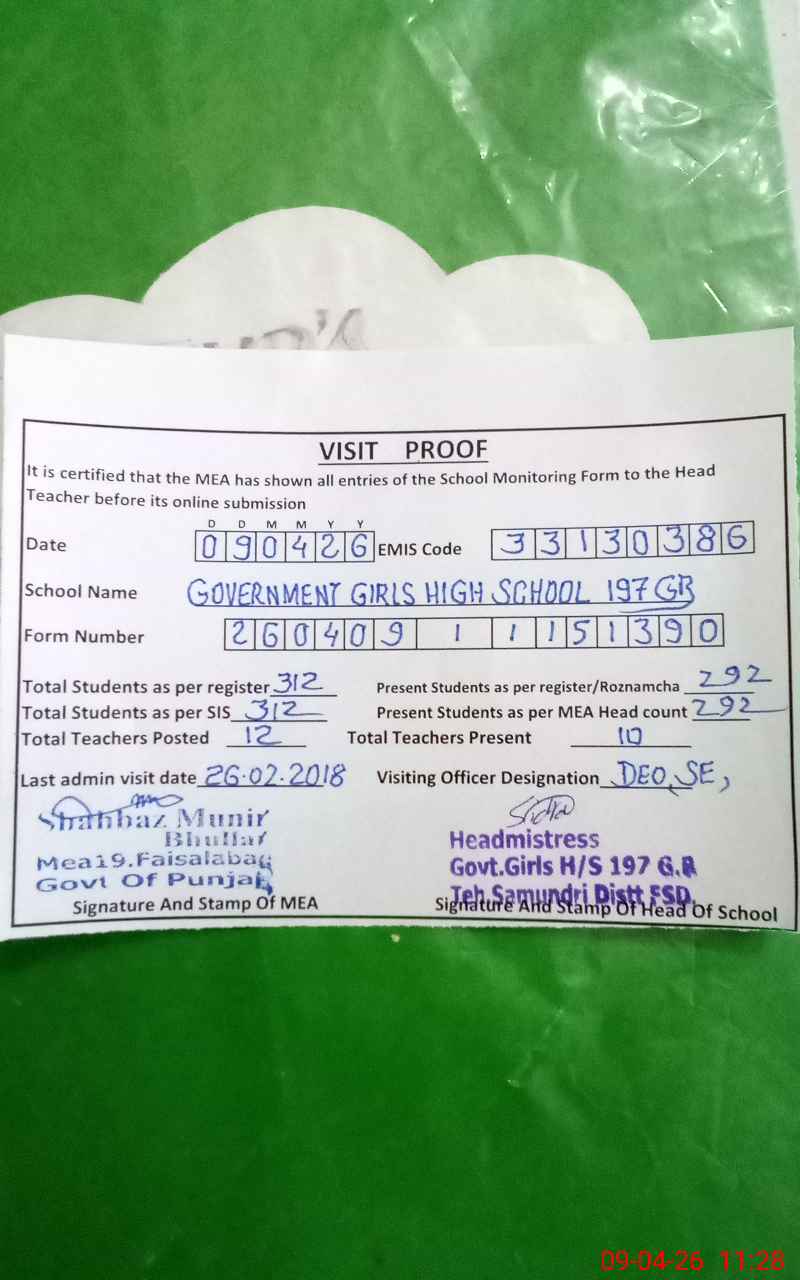 VISIT PROOF
It is certified that the MEA has shown all entries of the School Monitoring Form to the Head
Teacher before its online submission
D D M M Y Y
Date 090426 EMIS Code 33130386
School Name GOVERNMENT GIRLS HIGH SCHOOL 197 GB
Form Number 260409 1 1 151390
Total Students as per register 312 Present Students as per register/Roznamcha 292
Total Students as per SIS 312 Present Students as per MEA Head count 292
Total Teachers Posted 12 Total Teachers Present 10
Last admin visit date 26.02.2018 Visiting Officer Designation DEO, SE,
Shahbaz Munir
Bhullar
Mea19.Faisalabad
Govt Of Punjab
Headmistress
Govt.Girls H/S 197 G.B
Teh Samundri Distt FSD.
Signature And Stamp Of MEA Signature And Stamp Of Head Of School
09-04-26 11:28